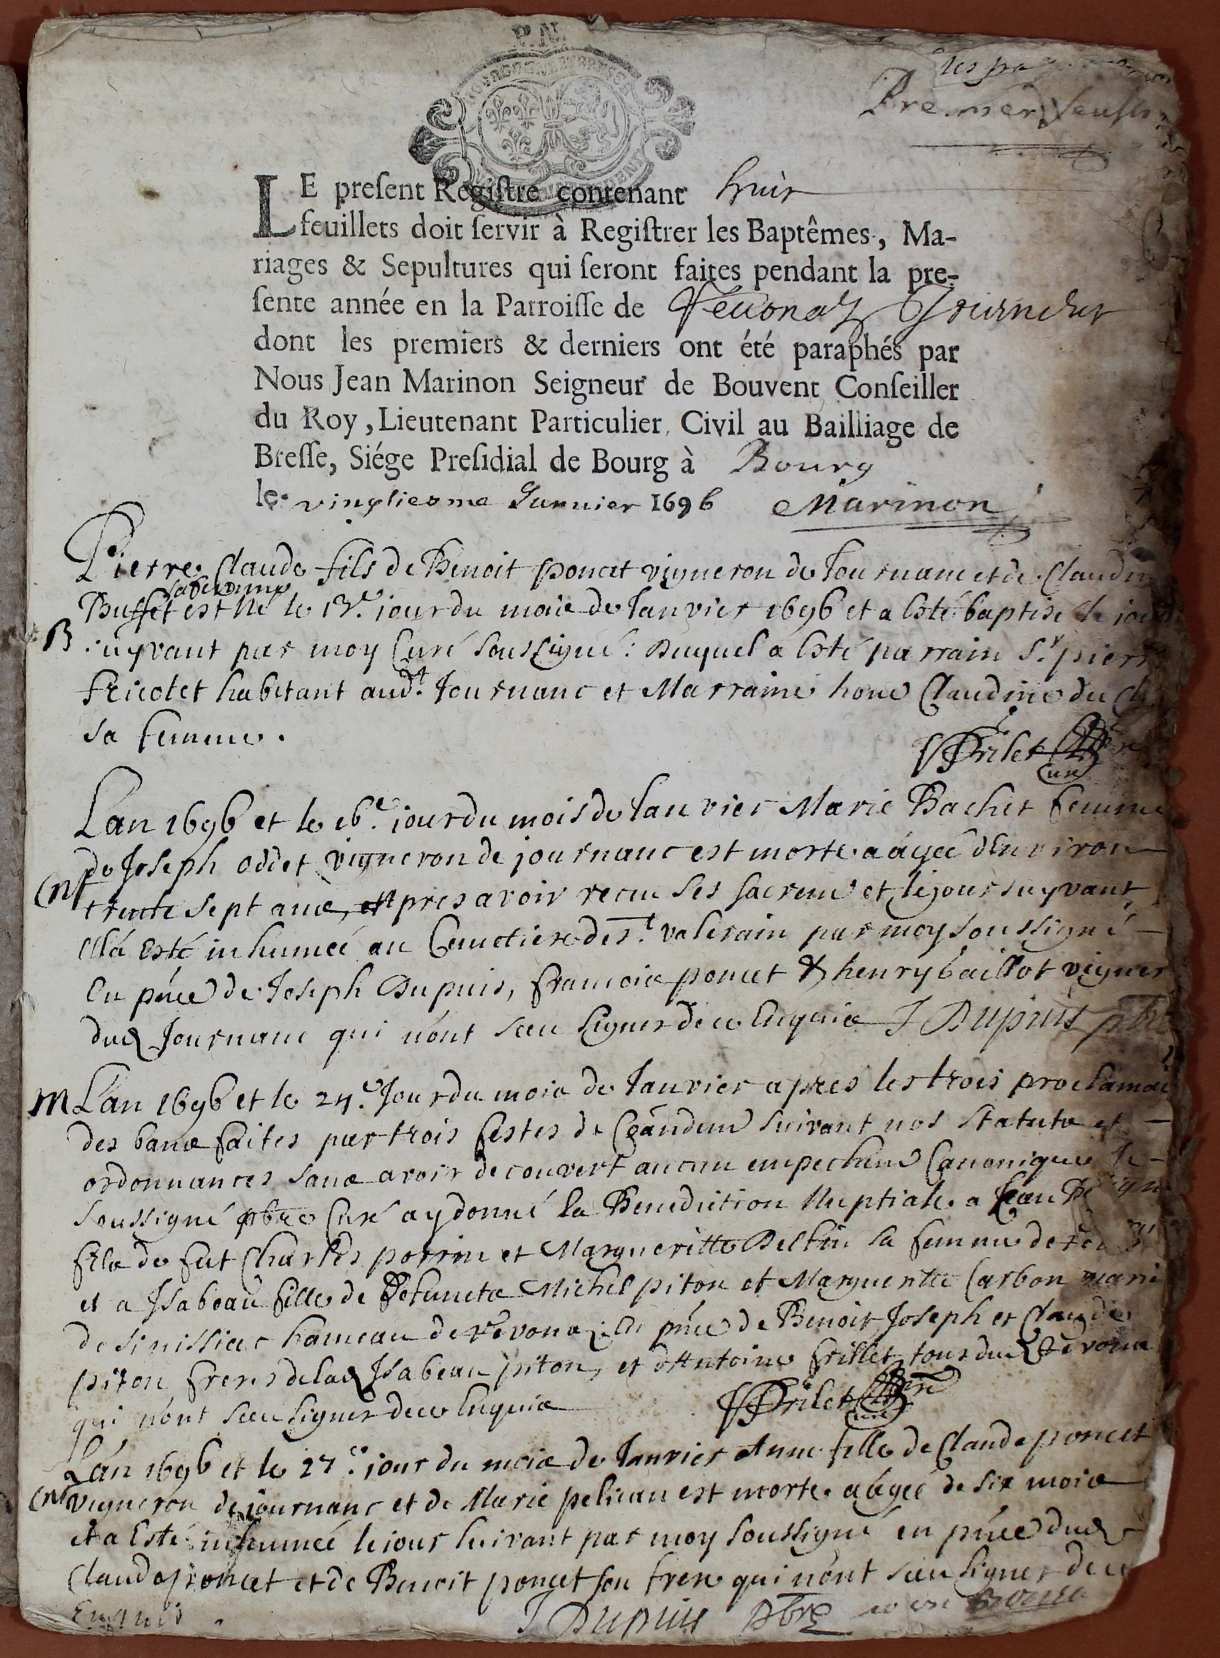 P.N.
les
Premier feuil
LE preſent Regiſtre contenant huit
feuillets doit ſervir à Regiſtrer les Baptêmes, Ma-
riages & Sepultures qui ſeront faites pendant la pre-
ſente année en la Parroiſſe de Revonaz Journans
dont les premiers & derniers ont été paraphés par
Nous Jean Marinon Seigneur de Bouvent Conſeiller
du Roy, Lieutenant Particulier Civil au Bailliage de
Breſſe, Siége Preſidial de Bourg à Bourg
le vingtiesme Janvier 1696 Marinon
Pierre Claude fils de Benoit poncet vigneron de Journanc et de Claudin
sa femme
B
Buffet est né le jour du mois de Janvier 1696 et a esté baptise le jour
suyvant par moy Curé soussigné. Duquel a esté parrain Sr. pierre
fricotet habitant aud.t Journanc et Marraine hone Claudine du
sa femme.
Frilet Curé
Lan 1696 et le 16e. jour du mois de Janvier Marie Bachet femme
de Joseph oddet vigneron de journanc est morte aagée d'Environ
Ent
trente sept ans, apres avoir recu ses sacrem et le jour suyvant
ella esté inhumée au Cemetiere de St. valerain par moy soussigné
En pñce de Joseph Dupuis, francois poncet & henry baillot vigner
dud Journanc qui n'ont sceu signer de ce Enquis J Dupuis pbre
M
L'an 1696 et le 24e. Jour du mois de Janvier apres les trois proclama
des bans faites par trois festes de Coãndem suivant nos statuts et
ordonnances sans avoir decouvert aucun empechem Canonique Je
soussigné pbre Curé ay donné la Benediction Nuptiale a Jean
fils de fut Charles perrin et Margueritte la femme de
et a Isabeau fille de defuncts Michel piton et Marguerite Carbon mari
de sinissiac hameau de revona; En pñce de Benoit Joseph et Claude
piton freres de lad Isabeau piton, et d'Antoine frillet, tous dud Revona
qui n'ont sceu signer de ce Enquis
Frilet Curé
Lan 1696 et le 27e. jour du mois de Janvier Anne fille de Claude poncet
Ent
vigneron de journanc et de Marie pelican est morte aagée de six mois
et a Esté inhumée le jour suivant par moy soussigné en pñce dud
Claude poncet et de Benoit poncet son frere qui n'ont sceu signer de ce
Enquis.
J Dupuis pbre